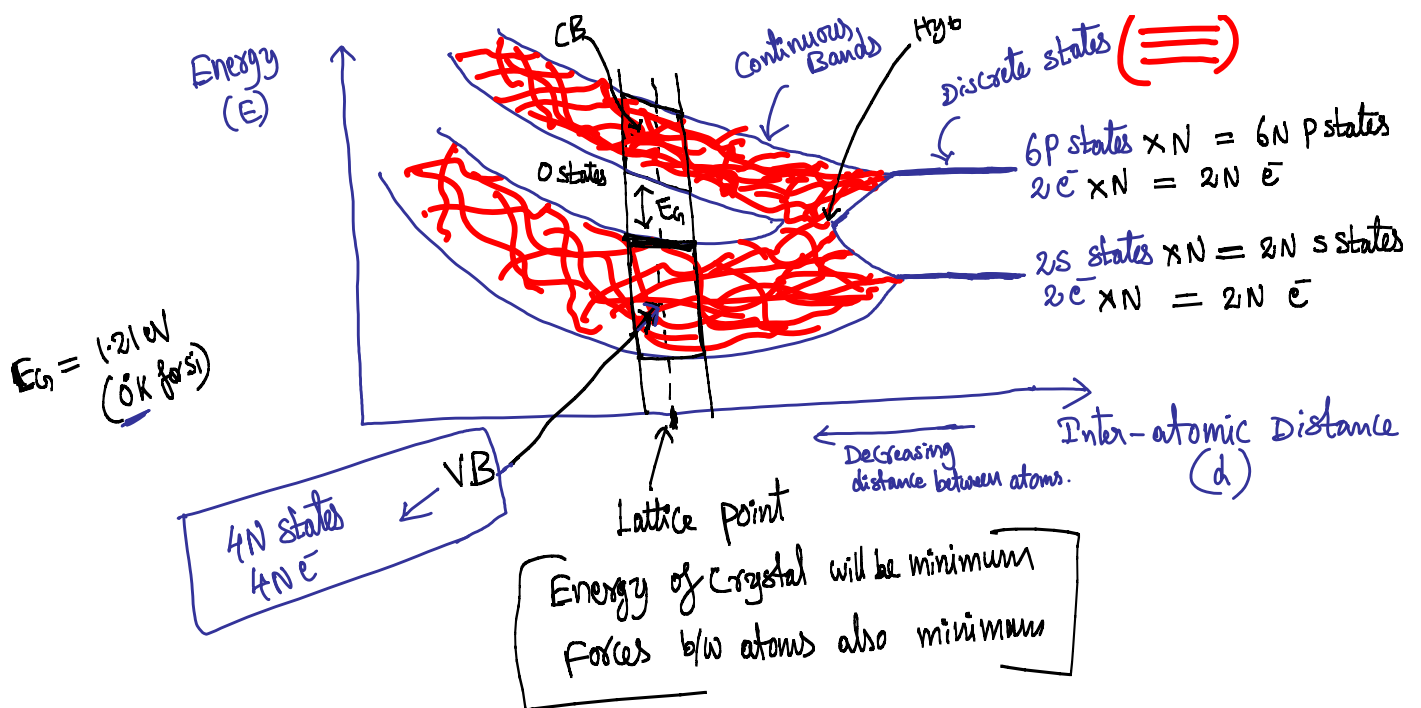 Energy
(E)
CB
Continuous
Bands
Hyb
Discrete states
6P states × N = 6N P states
2e⁻ × N = 2N e⁻
0 states
EG
2S states × N = 2N s states
2e⁻ × N = 2N e⁻
EG = 1.21 eV
(0°K for Si)
Inter-atomic Distance
(d)
Decreasing
distance between atoms.
VB
4N states
4N e⁻
Lattice point
Energy of Crystal will be minimum
Forces b/w atoms also minimum